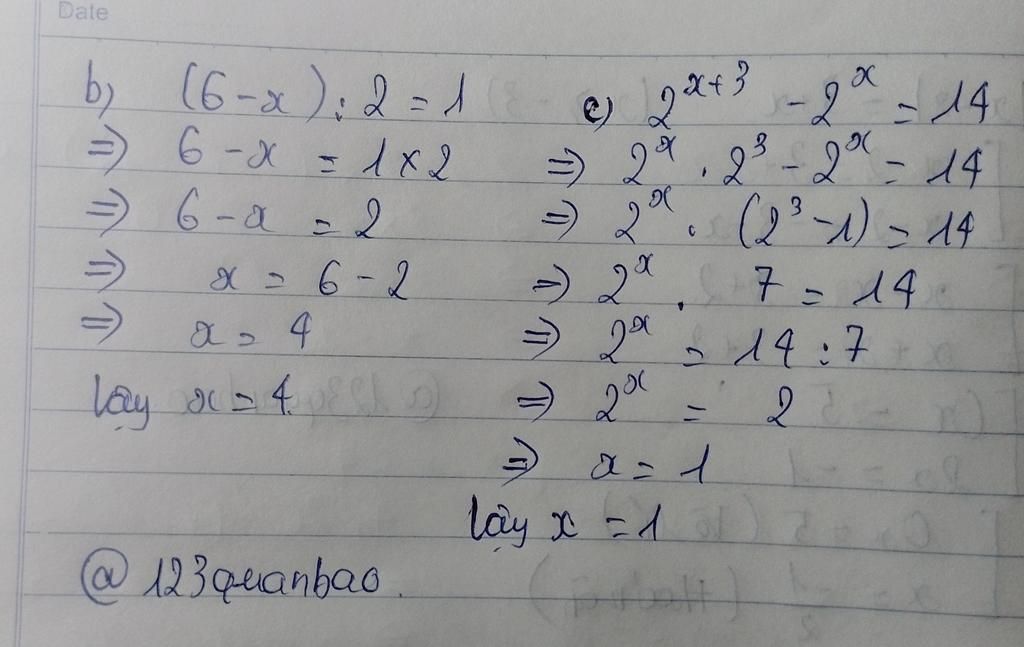 Date
b) (6-x) : 2 = 1
=> 6 - x = 1 × 2
=> 6 - x = 2
=> x = 6 - 2
=> x = 4
Vậy x = 4.
c) 2^{x+3} - 2^x = 14
=> 2^x . 2^3 - 2^x = 14
=> 2^x . (2^3 - 1) = 14
=> 2^x . 7 = 14
=> 2^x = 14 : 7
=> 2^x = 2
=> x = 1
Vậy x = 1
@ 123quanbao.